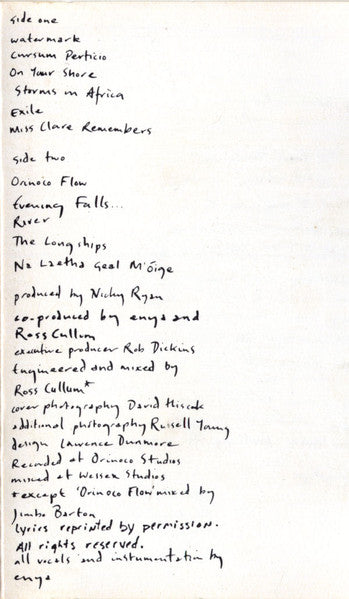 side one
watermark
Cursum Perficio
On Your Shore
Storms in Africa
Exile
Miss Clare Remembers
side two
Orinoco Flow
Evening Falls...
River
The Longships
Na Laetha Geal M'óige
produced by Nicky Ryan
co-produced by enya and
Ross Cullum
executive producer Rob Dickins
Engineered and mixed by
Ross Cullum*
cover photography David Hiscock
additional photography Russell Young
design Lawrence Dunmore
Recorded at Orinoco Studios
mixed at Wessex Studios
*except 'Orinoco Flow' mixed by
Jimbo Barton
lyrics reprinted by permission.
All rights reserved.
all vocals and instrumentation by
enya